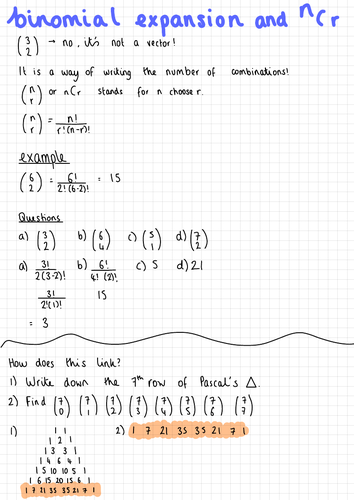 binomial expansion and nCr
(3 2) → no, it's not a vector!
It is a way of writing the number of combinations!
(n r) or nCr stands for n choose r.
(n r) = n! / r!(n-r)!
example
(6 2) = 6! / 2!(6-2)! = 15
Questions
a) (3 2) b) (6 4) c) (5 1) d) (7 2)
a) 3! / 2(3-2)! b) 6! / 4!(2)! c) 5 d) 21
3! / 2!(1)! 15
= 3
How does this link?
1) Write down the 7th row of Pascal's Δ.
2) Find (7 0) (7 1) (7 2) (7 3) (7 4) (7 5) (7 6) (7 7)
1) 1 1 2) 1 7 21 35 35 21 7 1
1 2 1
1 3 3 1
1 4 6 4 1
1 5 10 10 5 1
1 6 15 20 15 6 1
1 7 21 35 35 21 7 1